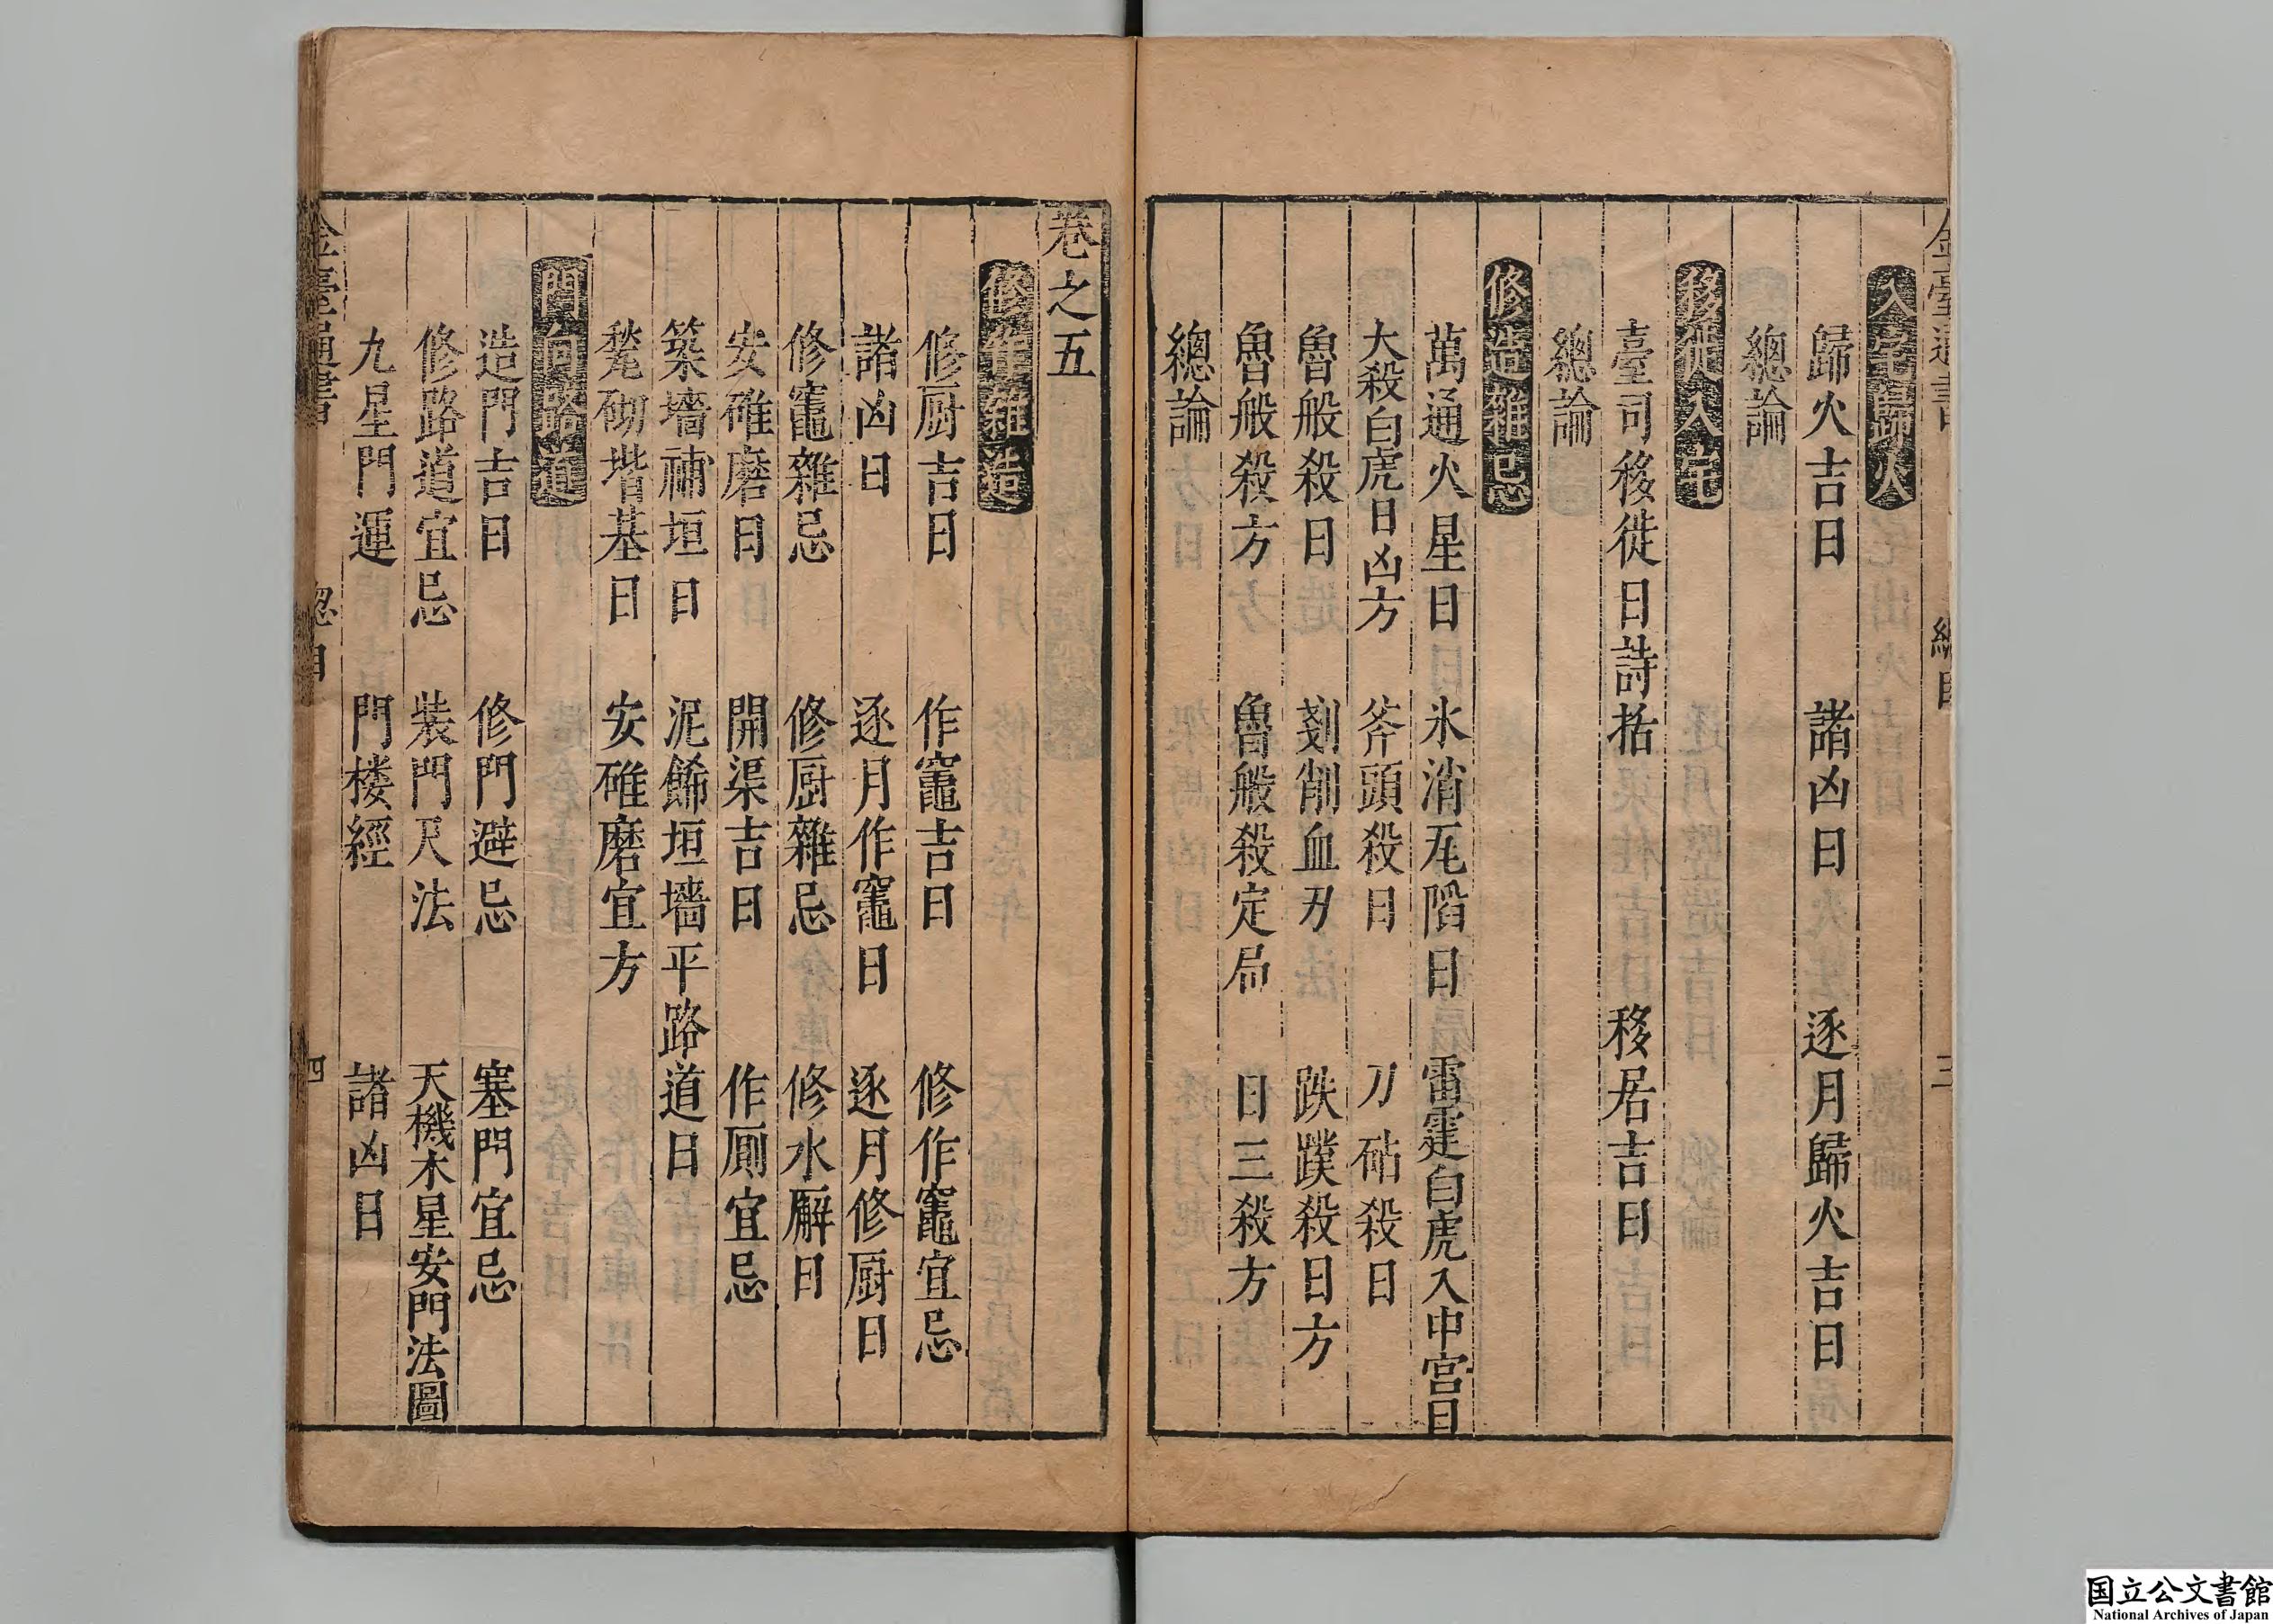 入宅歸火
歸火吉日　諸凶日　逐月歸火吉日
總論
移徙入宅
臺司移徙日詩括　移居吉日
總論
修造雜忌
萬通火星日　氷消瓦陷日　雷霆白虎入中宮日
大殺白虎日凶方　斧頭殺日　刀砧殺日
魯般殺日　剗削血刃　跌蹼殺日方
魯般殺方　魯般殺定局　日三殺方
總論
卷之五
修作雜造
修厨吉日　作竈吉日　修作竈宜忌
諸凶日　逐月作竈日　逐月修厨日
修竈雜忌　修厨雜忌　修水廨日
安碓磨日　開渠吉日　作厠宜忌
築墻補垣日　泥飾垣墻平路道日
甃砌堦基日　安碓磨宜方
門向路道
造門吉日　修門避忌　塞門宜忌
修路道宜忌　裝門尺法　天機木星安門法圖
九星門運　門楼經　諸凶日
四
国立公文書館
National Archives of Japan